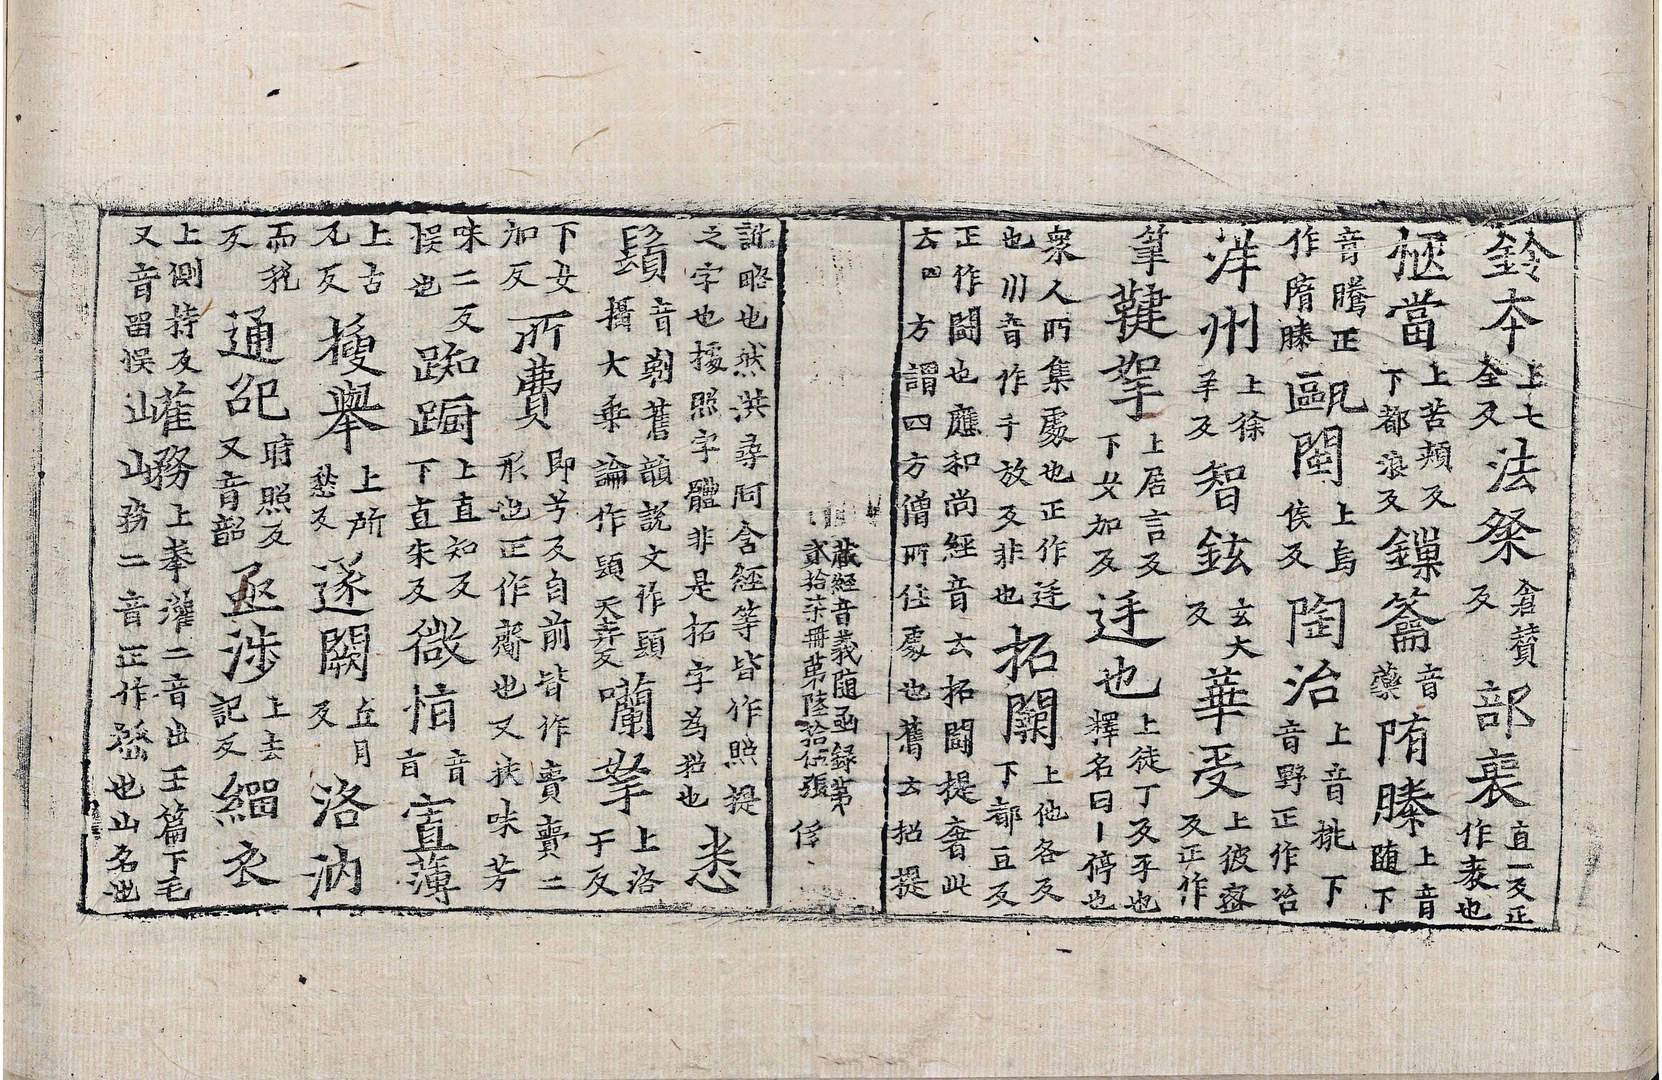 鈴本上七全反法粲倉賛反部裹直一反正作袠也
愜當上苦頰反下都浪反鏁籥音藥隋縢上音随下
音騰正作隋縢甌閩上烏侯反陶冶上音挑下音野正作冶
洋州上徐羊反智鉉玄犬反華受上彼密反正作
筆鞬拏上居言反下女加反廷也上徒丁反乎也釋名曰丨停也
衆人所集處也正作廷也川音作于放反非也拓闗上他各反下都豆反
正作鬪也應和尚經音云拓鬪提奢此云四方謂四方僧所住處也舊云招提
藏經音義随函録第貳拾柒冊第陸拾伍張 侈
訛略也然洪尋阿含經等皆作照提之字也據照字體非是拓字為招也悉
音剃舊韻説文作頭攝大乗論作顕天弃反囒拏上洛干反
下女加反所費即兮反自前皆作賣賣二形也正作齎也又扶味芳
味二反悮也踟蹰上直知反下直朱反微音首寘薄
上古瓦反舉上所愁反遂闕丘月反洛汭
而税反通邵府照反又音韶亟涉上去記反緇衣
上側持反又音留悮務上拳灌二音出玉篇下毛務二音正作嵍也山名也